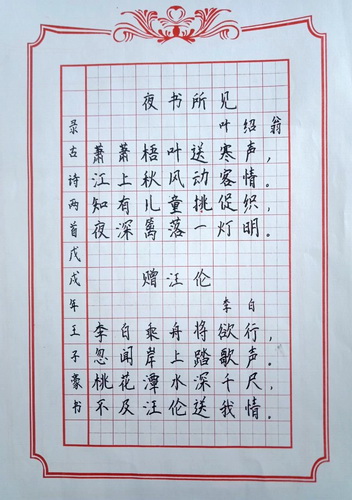 夜书所见
叶绍翁
萧萧梧叶送寒声，
江上秋风动客情。
知有儿童挑促织，
夜深篱落一灯明。
赠汪伦
李白
李白乘舟将欲行，
忽闻岸上踏歌声。
桃花潭水深千尺，
不及汪伦送我情。
录古诗两首戊戌年王子豪书